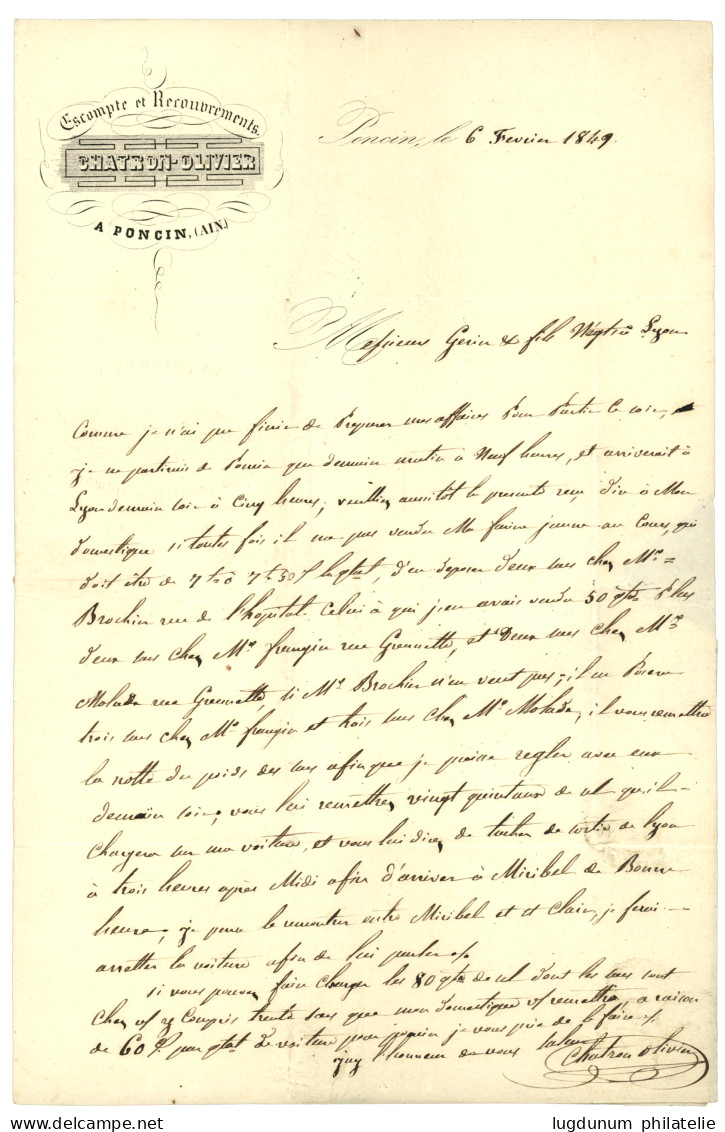 Escompte et Recouvrements.
CHATRON-OLIVIER
A PONCIN, (AIN)
Poncin, le 6 Fevrier 1849.
Messieurs Gerin & fils Négtts Lyon
Comme je n'ai pas finie de Preparer mes affaires Pour Partir ce soir,
je ne partirais de Poncin que demain matin à Neuf heures, et arriverait à
Lyon demain soir à Cinq heures, veuilliez aussitot la presente reçu, dire à Mon
domestique si toutes fois il na pas vendu Ma farine jaune au Cours, qui
doit être de 7 à 7 50 le qtal, d'en deposer deux sacs chez Mr
Brochin rue de l'hopital. Celui à qui j'en avais vendu 50 qtx Plus
deux sacs chez Mr frangin rue Grenette, et Deux sacs chez Mr
Molade rue Grenette, si Mr Brochin n'en veut pas; il en Posera
trois sacs chez Mr frangin et trois sacs chez Mr Molade, il vous remettra
la notte du poids des sacs afin que je puisse regler avec eux
demain soir, vous lui remettrez vingt quintaux de sel qu'il
Chargera sur ma voiture, et vous lui direz de tacher de sortir de Lyon
à trois heures après Midi afin d'arriver à Miribel de Bonne
heure, je pense le rencontrer entre Miribel et st Clair, je ferai
arretter la voiture afin de lui parler
si vous pouvez faire Charger les 80 qtx de sel dont les sacs sont
Chez vs y Compris trente sacs que mon domestique vs remettra, a raison
de 60 c. par qtal de voiture pour poncin je vous prie de le faire
Jay l'honneur de vous saluer
Chatron Olivier
lugdunum philatelie